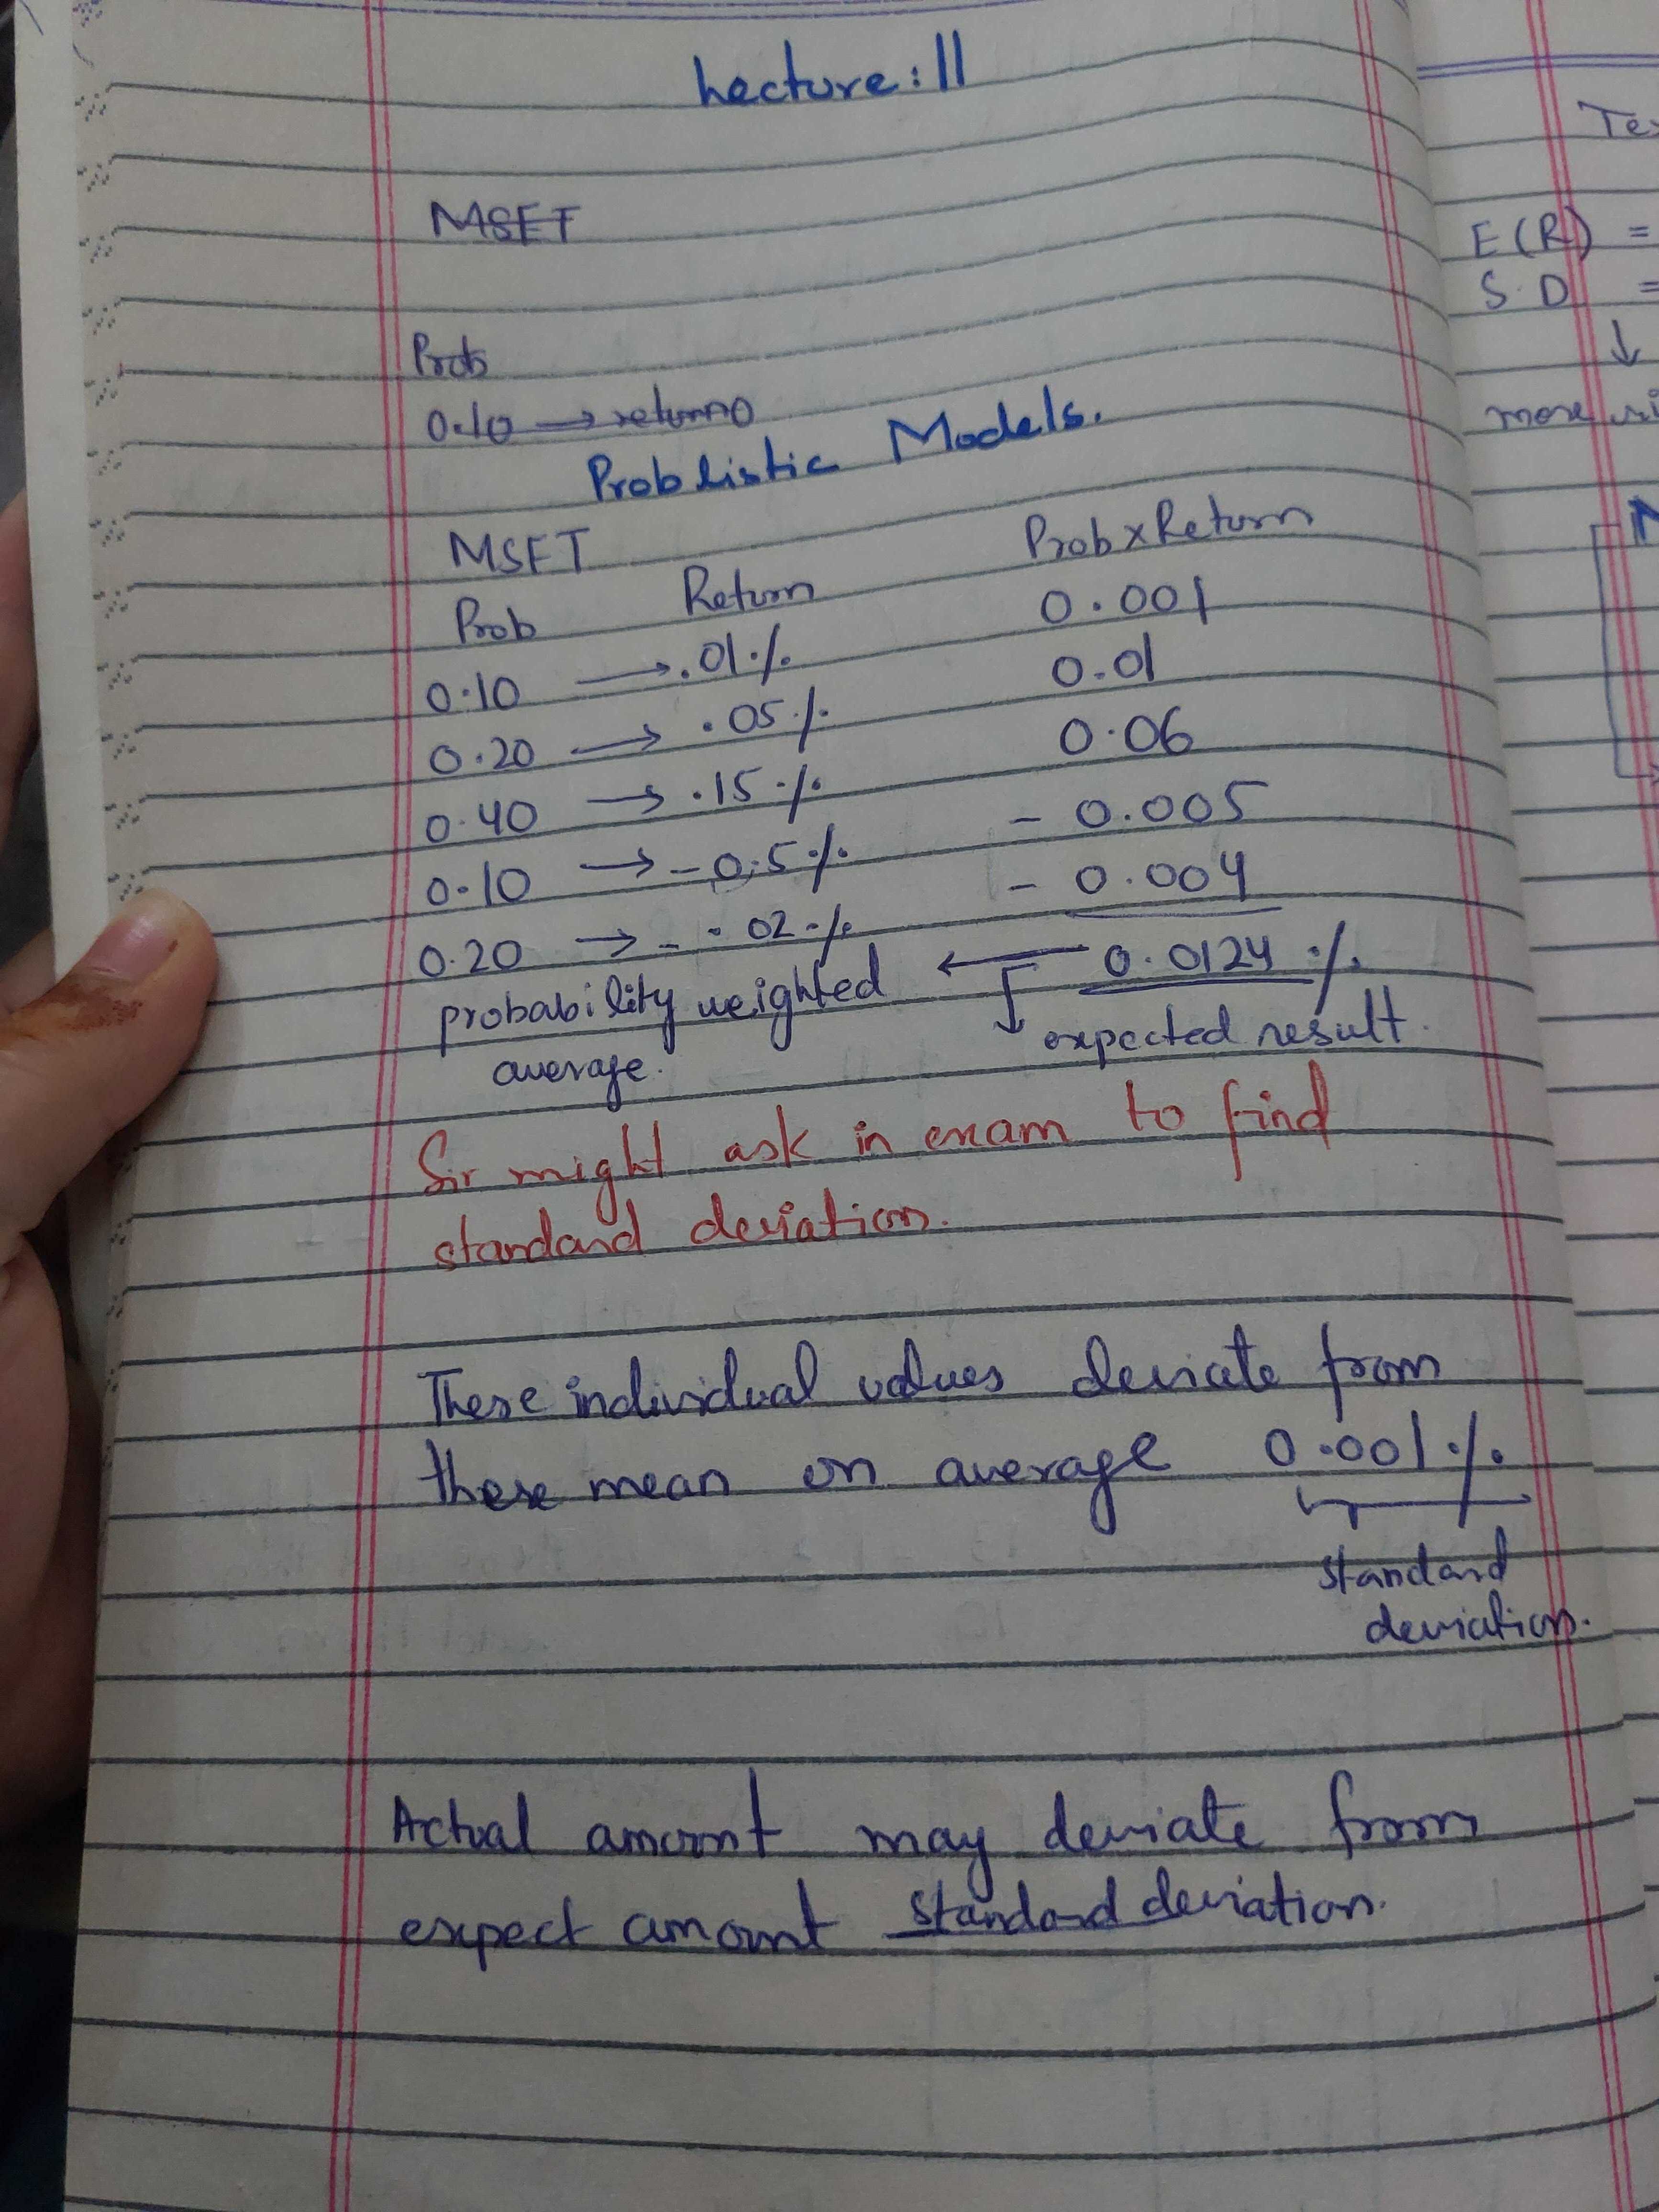 Lecture: 11
MSFT
Prob
0.10 → return 0
Problistic Models.
MSFT Prob x Return
Prob Return 0.001
0.10 → .01% 0.01
0.20 → .05% 0.06
0.40 → .15% - 0.005
0.10 → - 0.5% - 0.004
0.20 → - .02% ← 0.0124 %
probability weighted expected result.
average.
Sir might ask in exam to find
standard deviation.
These individual values deviate from
these mean on average 0.001%
standard
deviation.
Actual amount may deviate from
expect amount standard deviation.
E(R) =
S.D =
↓
more